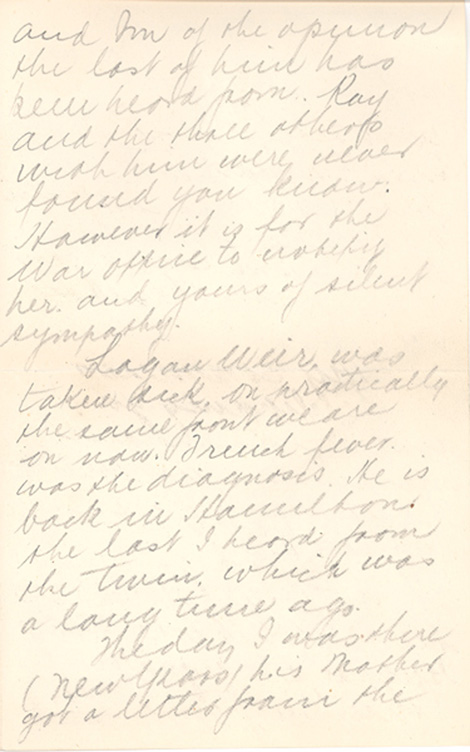 and I'm of the opinion
the last of him has
been heard from. Ray
and the three others
with him were never
found you know.
However it is for the
War office to notify
her. and yours of silent
sympathy.
Logan Weir, was
taken sick, on practically
the same front we are
on now. Trench fever.
was the diagnosis. He is
back in Hamilton.
the last I heard from
the twin, which was
a long time ago.
The day I was there
(New Years) his Mother
got a letter from the